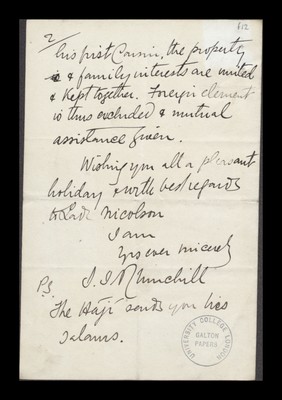 2/
612
his first Cousin, the property
& family interests are united
& kept together. Foreign element
is thus excluded & mutual
assistance given.
Wishing you all a pleasant
holiday & with best regards
to Lady Nicolson
I am
Yrs ever sincerely
P.S.
The Hāji sends you his
salaams.
UNIVERSITY COLLEGE LONDON
GALTON
PAPERS